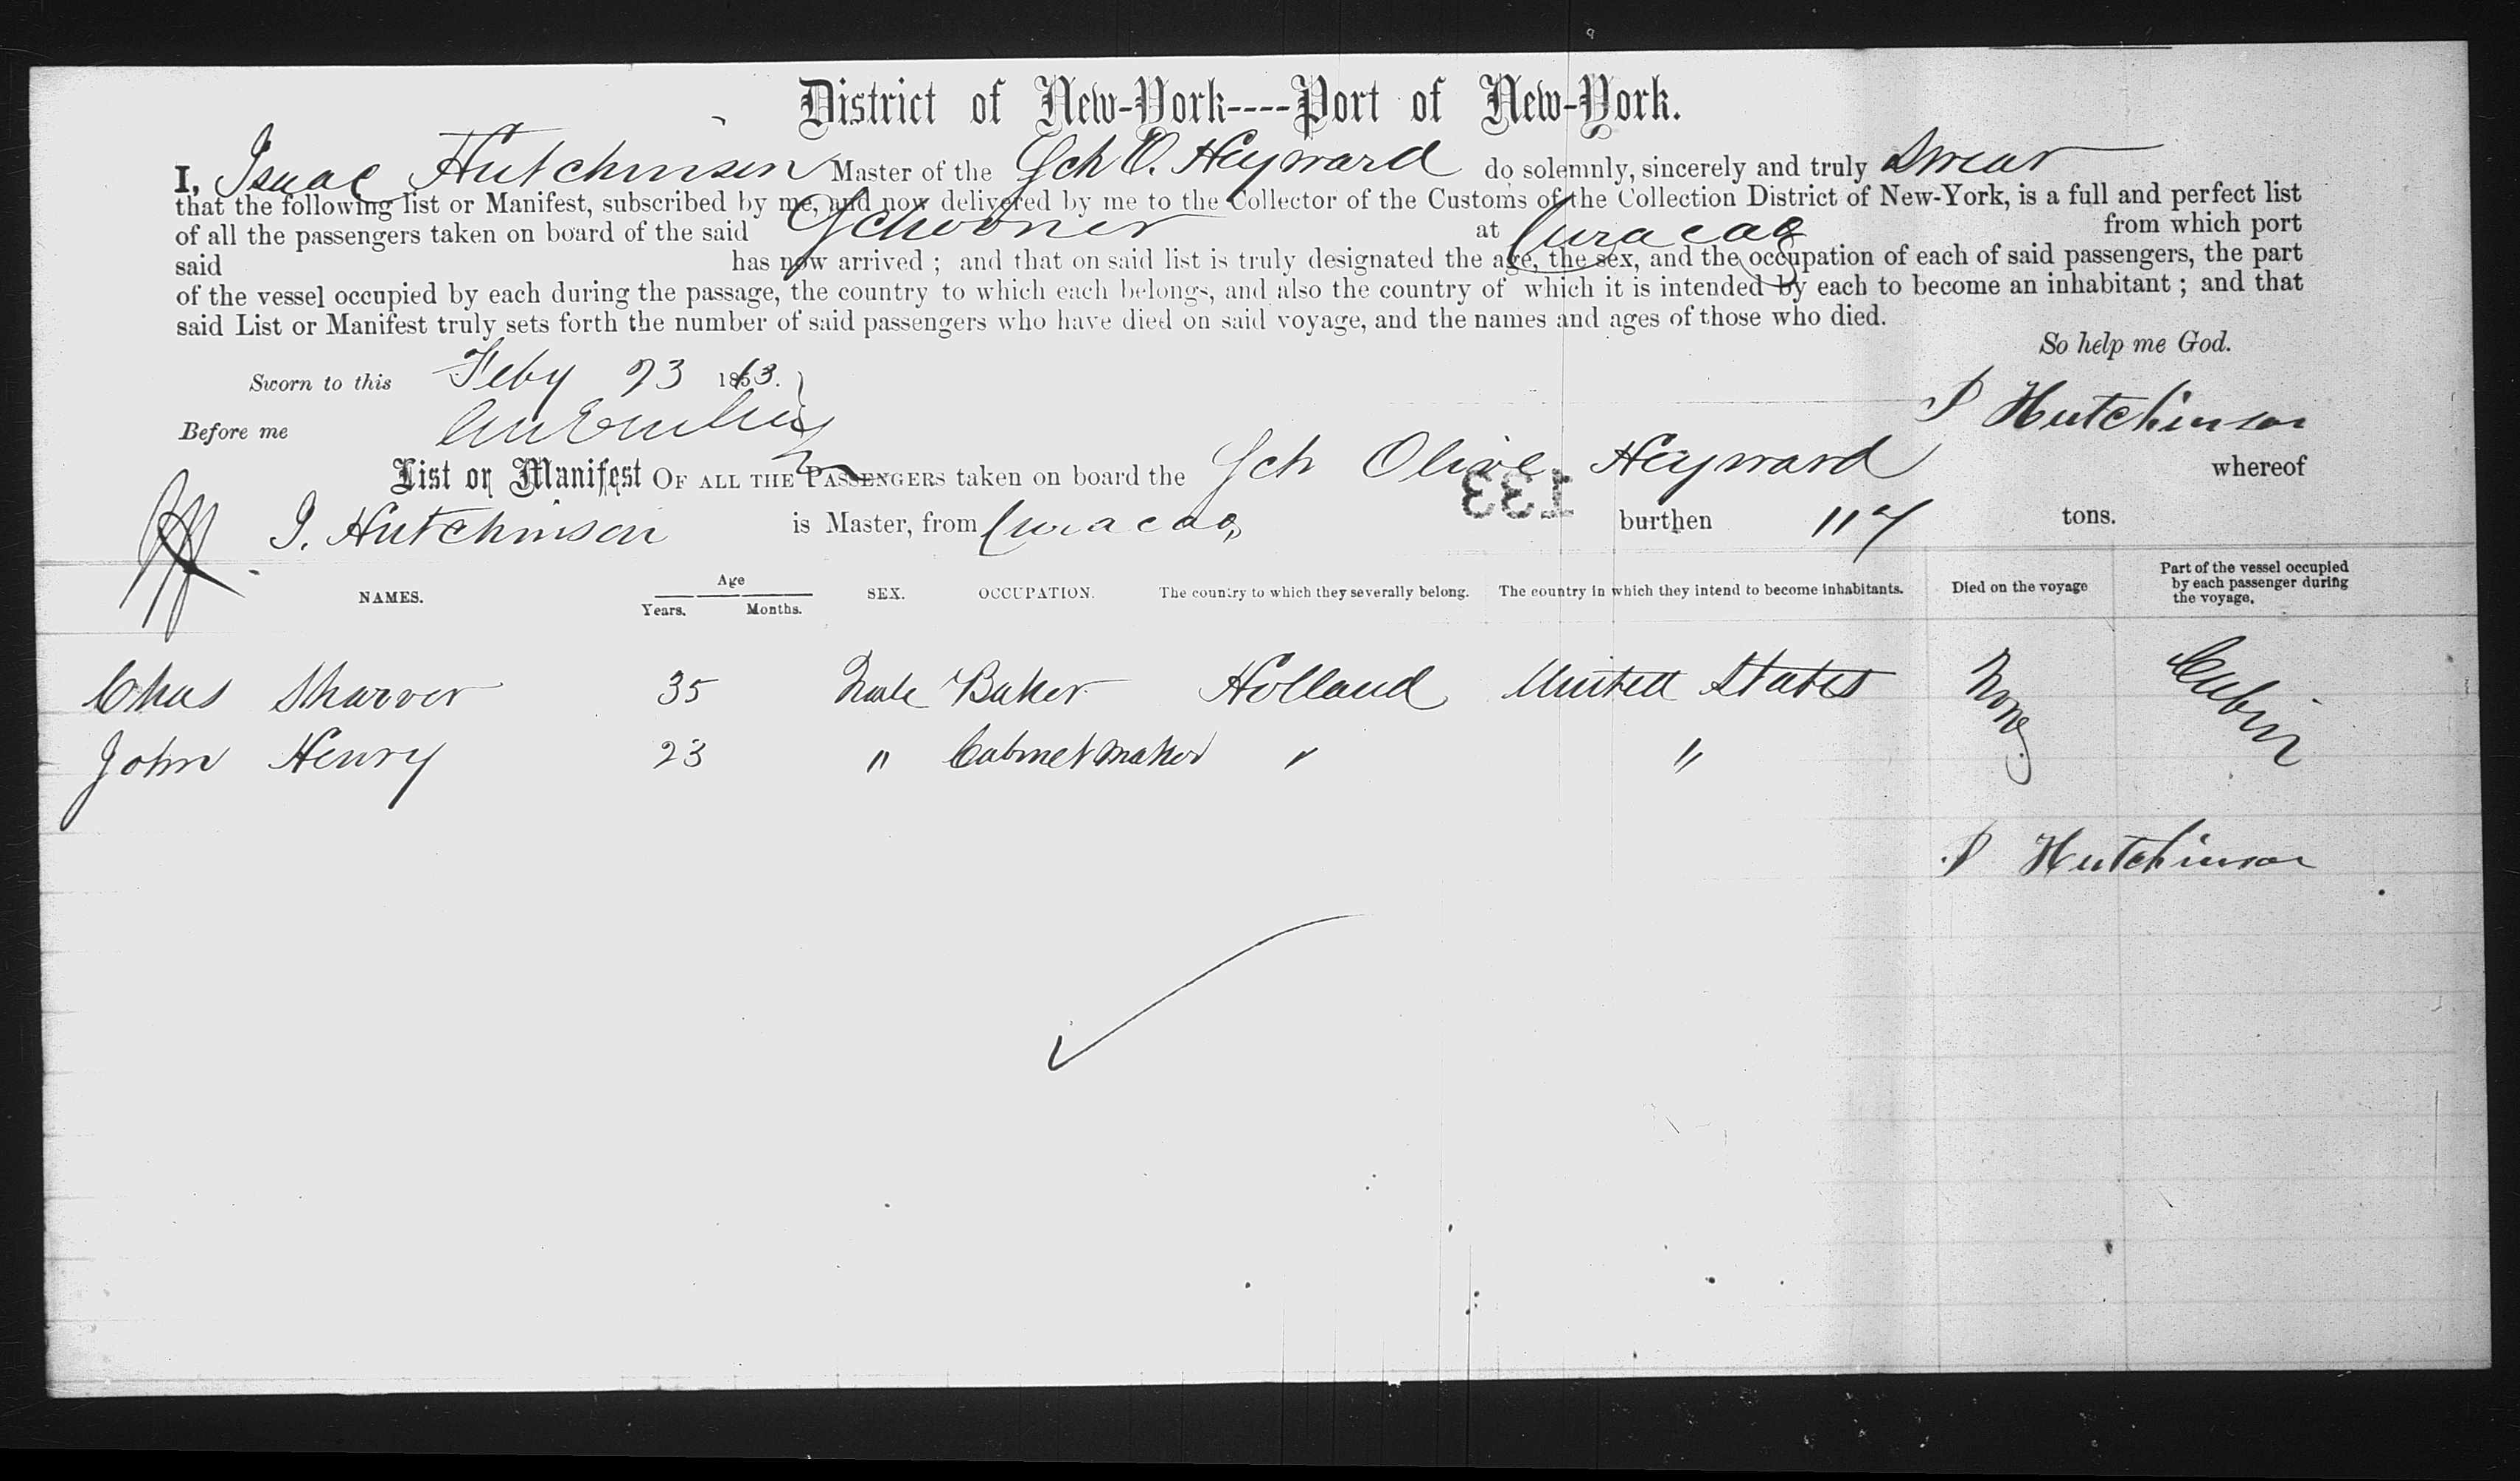 District of New-York----Port of New-York.
I, Isaac Hutchinson Master of the Sch O. Heyward do solemnly, sincerely and truly Swear
that the following list or Manifest, subscribed by me, and now delivered by me to the Collector of the Customs of the Collection District of New-York, is a full and perfect list
of all the passengers taken on board of the said Schooner at Curacao from which port
said has now arrived ; and that on said list is truly designated the age, the sex, and the occupation of each of said passengers, the part
of the vessel occupied by each during the passage, the country to which each belongs, and also the country of which it is intended by each to become an inhabitant ; and that
said List or Manifest truly sets forth the number of said passengers who have died on said voyage, and the names and ages of those who died.
So help me God.
Sworn to this Feby 23 1863.
I Hutchinson
Before me
List or Manifest OF ALL THE PASSENGERS taken on board the Sch Olive Heyward whereof
133
I. Hutchinson is Master, from Curacao, burthen 117 tons.
NAMES. Age Years. Months. SEX. OCCUPATION. The country to which they severally belong. The country in which they intend to become inhabitants. Died on the voyage Part of the vessel occupied by each passenger during the voyage.
Chas Sharver 35 Male Baker Holland United States None Cabin
John Henry 23 " Cabinet maker " "
I Hutchinson